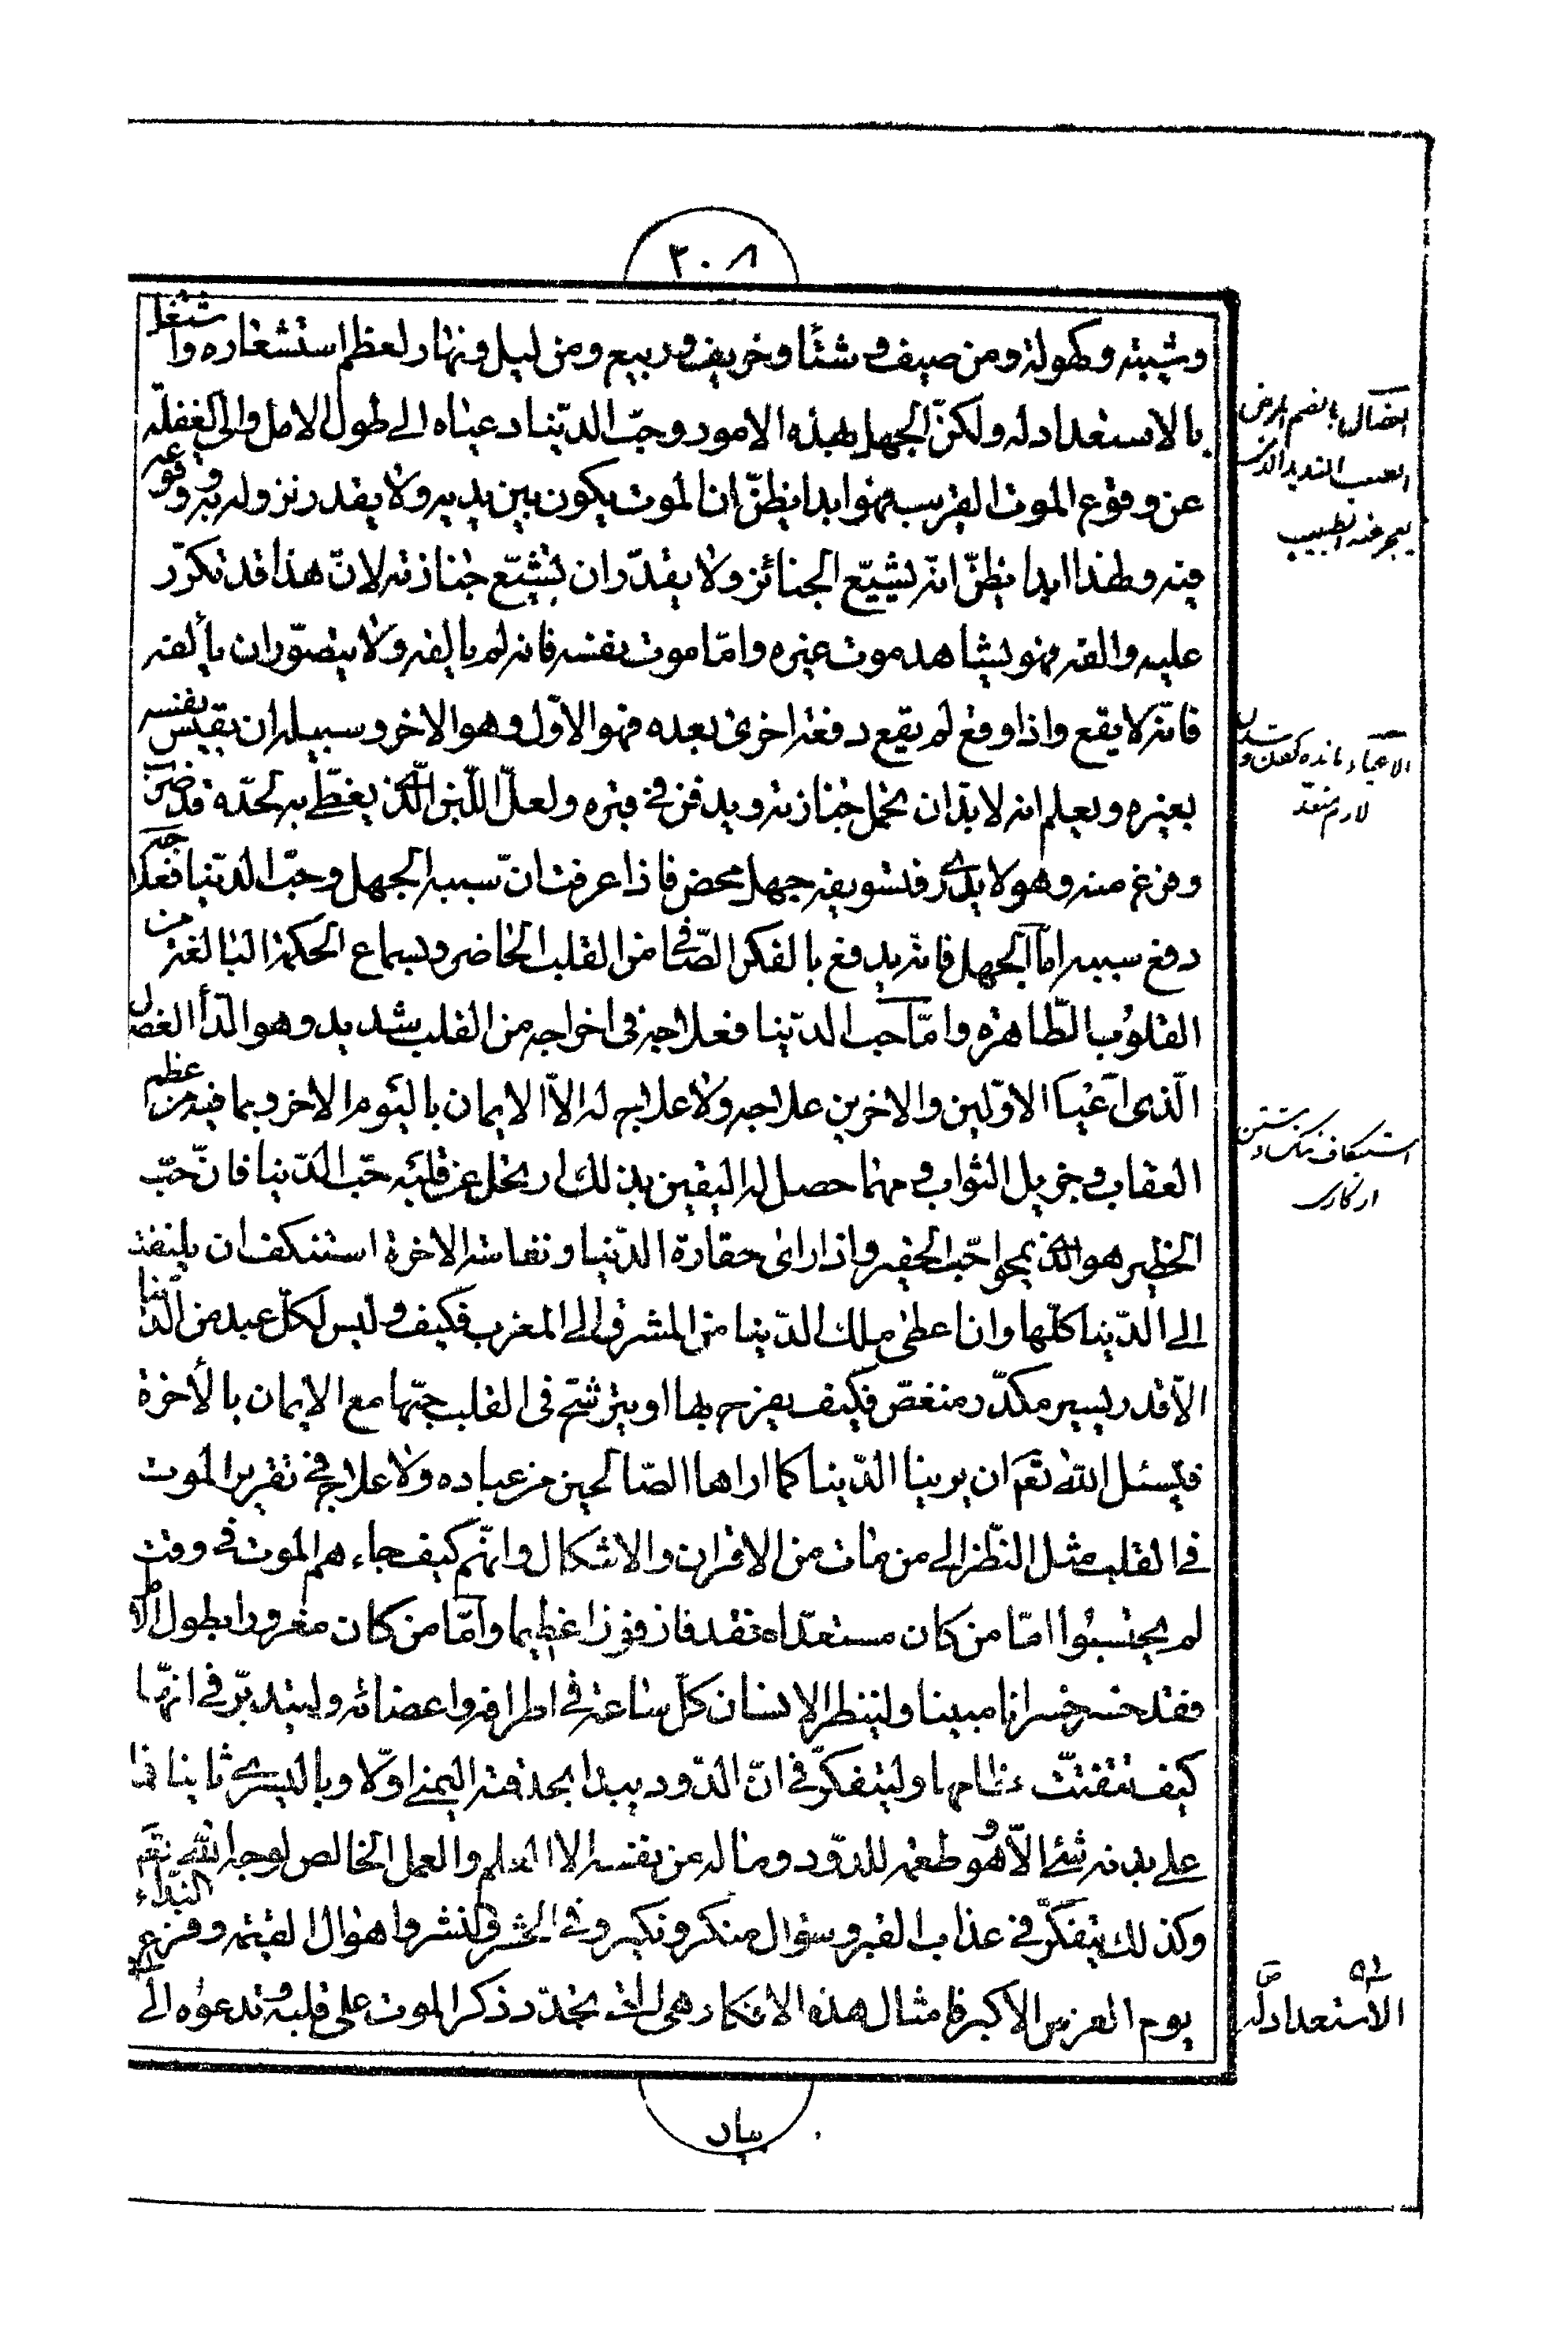 ٢٠٨
وشيبته وكهولة ومن صيف و شتٰاء وخريف و ربيع ومن ليل و نهٰار لعظم استشعاره واشتغل
بالاستعداد له ولكنّ الجهل بهذه الامور وحبّ الدّنيا دعياه الى طول الامل والى الغفلة
عن وقوع الموت القريب فهو ابدا يظنّ ان الموت يكون بين يديه ولا يقدر نزوله به ووقوعه
فيه وهكذا ابدا يظنّ انّه يشيّع الجنائز ولا يقدّر ان يشيّع جنازته لانّ هذا قد تكرّر
عليه والفه فهو يشاهد موت غيره وامّا موت نفسه فانه لم يألفه ولا يتصوّر ان يألفه
فانّه لا يقع واذا وقع لم يقع دفعة اخرى بعده فهو الاوّل وهو الاخر وسبيله ان يقيس نفسه
بغيره ويعلم انه لا بدّ ان يحمل جنازته ويدفن في قبره ولعلّ اللّبن الّذي يغطّى به لحده قد ضرب
وفرغ منه وهو لا يدرى فتسويفه جهل محض فاذا عرفت انّ سببه الجهل وحبّ الدّنيا فعلاجه
دفع سببه امّا الجهل فانّه يدفع بالفكر الصّافى من القلب الحاضر وبسماع الحكمة البالغة من
القلوب الطّاهرة وامّا حب الدّنيا فعلاجه فى اخراجه من القلب شديد وهو الدّاء العضال
الّذى اعيا الاوّلين والاخرين علاجه ولا علاج له الّا الايمان باليوم الاخر وبما فيه من عظم
العقاب و جزيل الثواب و مهما حصل له اليقين بذلك ارتحل عن قلبه حبّ الدّنيا فانّ حبّ
الخطير هو الّذى يمحوا حبّ الحقير واذا راى حقارة الدّنيا ونفاسة الاخرة استنكف ان يلتفت
الى الدّنيا كلّها وان اعطى ملك الدّنيا من المشرق الى المغرب فكيف و ليس لكلّ عبد من الدّنيا
الّا قدر يسير مكدّر منغصّ فكيف يفرح بها او يترشّح فى القلب حبّها مع الايمان بالأخرة
فنسئل اللّه تعٰم ان يرينا الدّنيا كما اراها الصّالحين من عباده ولا علاج في تقرير الموت
في القلب مثل النّظر الى من مات من الاقران والاشكال وانّهم كيف جاءهم الموت في وقت
لم يحتسبوا امّا من كان مستعدّا له فقد فاز فوزا عظيما وامّا من كان مغرورا بطول الامل
فقد خسر خسرانا مبينا ولينظر الانسان كلّ ساعة في اطرافه واعضائه وليتدبّر فى انّها
كيف تتفتّت عظامها وليتفكّر في انّ الدّود يبدا بحدقته اليمنى اوّلا وباليسرى ثانيا فما
على بدنه شئ الّا هو طعمة للدّود وما له من نفسه الا العلم والعمل الخالص لوجه اللّه تعٰم
وكذلك يتفكّر في عذاب القبر وسؤال منكر و نكير وفى الحشر والنشر واهوال القيمة وفزع النّداء
يوم العرض الاكبر فامثال هذه الافكار هى الّتى تجدّد ذكر الموت على قلبه وتدعوه الى
الاستعداد له
العضال بالضم المرض
الصعب الشديد الذى
يعجز عنه الطبيب
الاعياء مانده كردن و شدن
لازم متعدّ
استنكاف ننك داشتن
از كارى
بيان